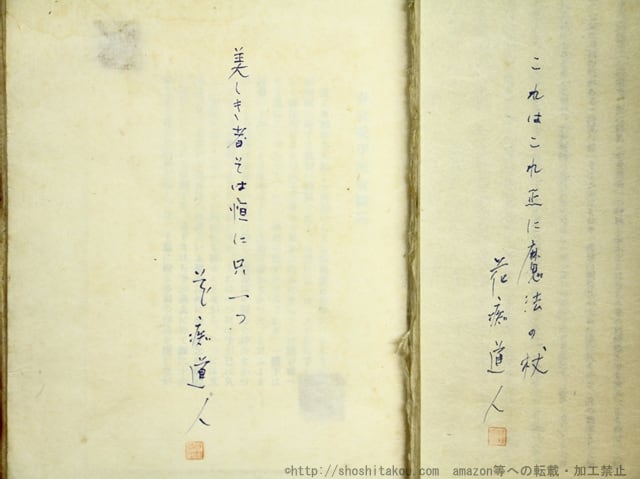 これはこれ正に魔法の杖
花痴道人
美しき者そは恒に只一つ
花痴道人
©http://shoshitakou.com amazon等への転載・加工禁止